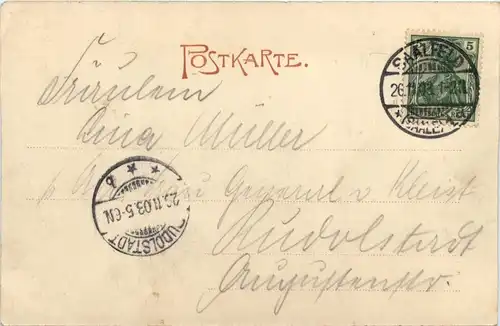 POSTKARTE.
5
SAALFELD
26.11.03.
(SAALE)
Fräulein
Lina Müller
Frau General v Kleist
Rudolstadt
Augustenstr.
RUDOLSTADT
26.11.03.5-6N.